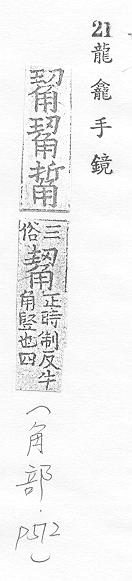 21 龍龕手鏡
三俗觢正時制反牛角竪也四
(角部.p512)